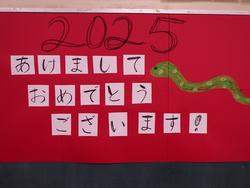 2025
あけまして
おめでとう
ございます!